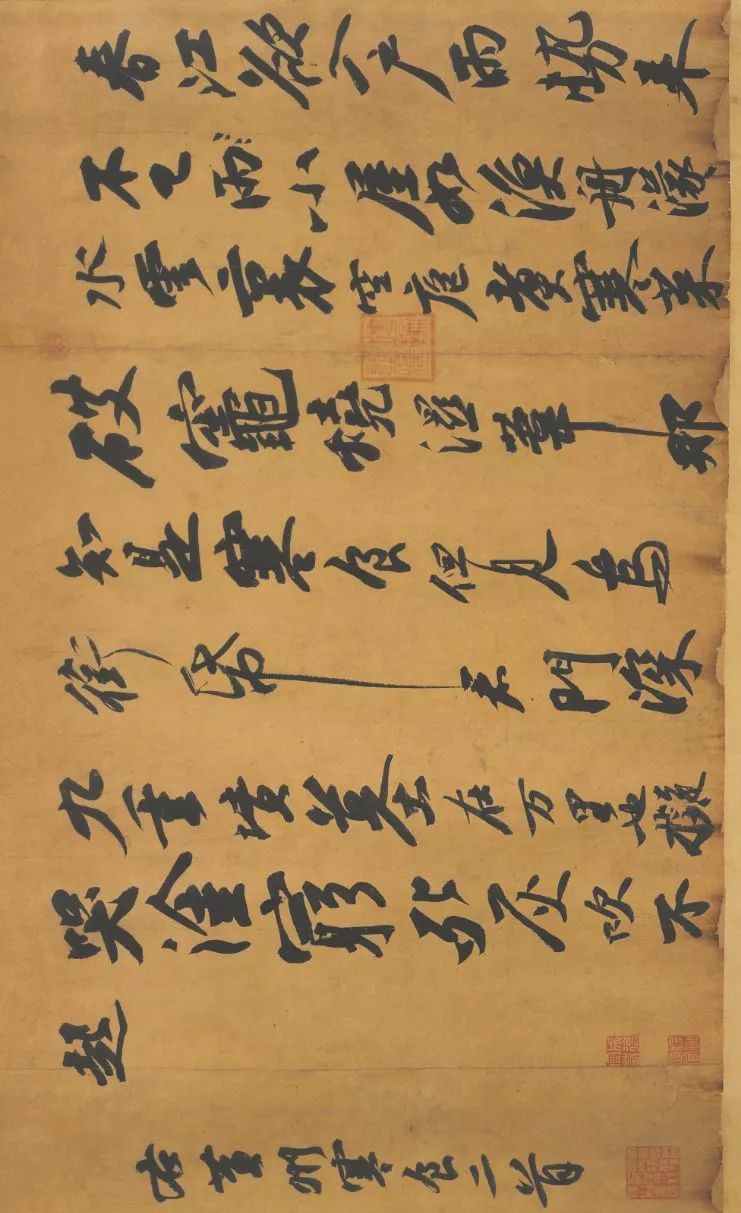 春江欲入户雨勢来
不已雨小屋如漁舟濛〻
水雲裏空庖煮寒菜
破竈燒濕葦那
知是寒食但見烏
銜帋君門深
九重墳墓在万里也擬
哭塗窮死灰吹不
起
右黄州寒食二首